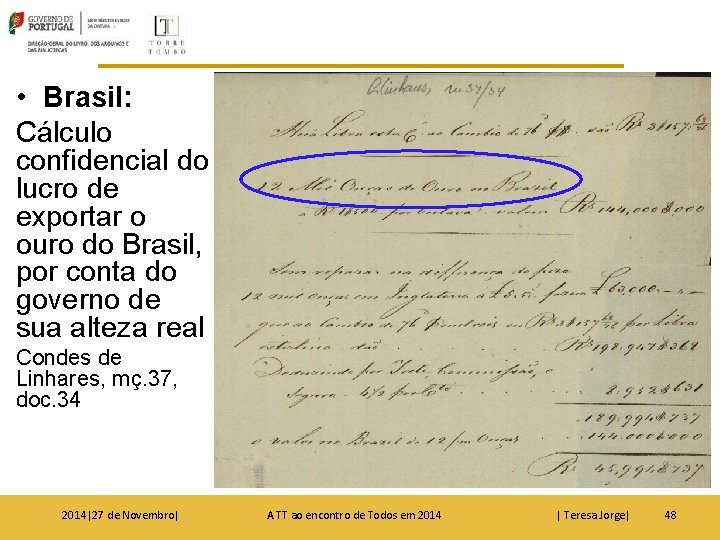 GOVERNO DE
PORTUGAL
DIREÇÃO-GERAL DO LIVRO, DOS ARQUIVOS E
DAS BIBLIOTECAS
TORRE
TOMBO
• Brasil:
Cálculo
confidencial do
lucro de
exportar o
ouro do Brasil,
por conta do
governo de
sua alteza real
Condes de
Linhares, mç.37,
doc.34
Linhares, mç 37/34
Huã Libra esta ao Cambio de 76 são Rs 3$157
12 Mil Onças de Ouro no Brazil
a Rs 1$500 por outava valem Rs 144,000$000
Sem reparar na differença do pezo
12 mil onças em Inglaterra a £ fazem £63,000
que ao Cambio de 76 Rs 3$157 por Libra
esterlina são Rs 198:947$368
Deduzindo por Frete, Commissão, e
Seguro 4 1/2 por Co 8:952$631
189:994$737
o valor no Brazil de 12 Onças 144:000$000
Rs 45,994$737
2014|27 de Novembro|
ATT ao encontro de Todos em 2014
| Teresa Jorge|
48